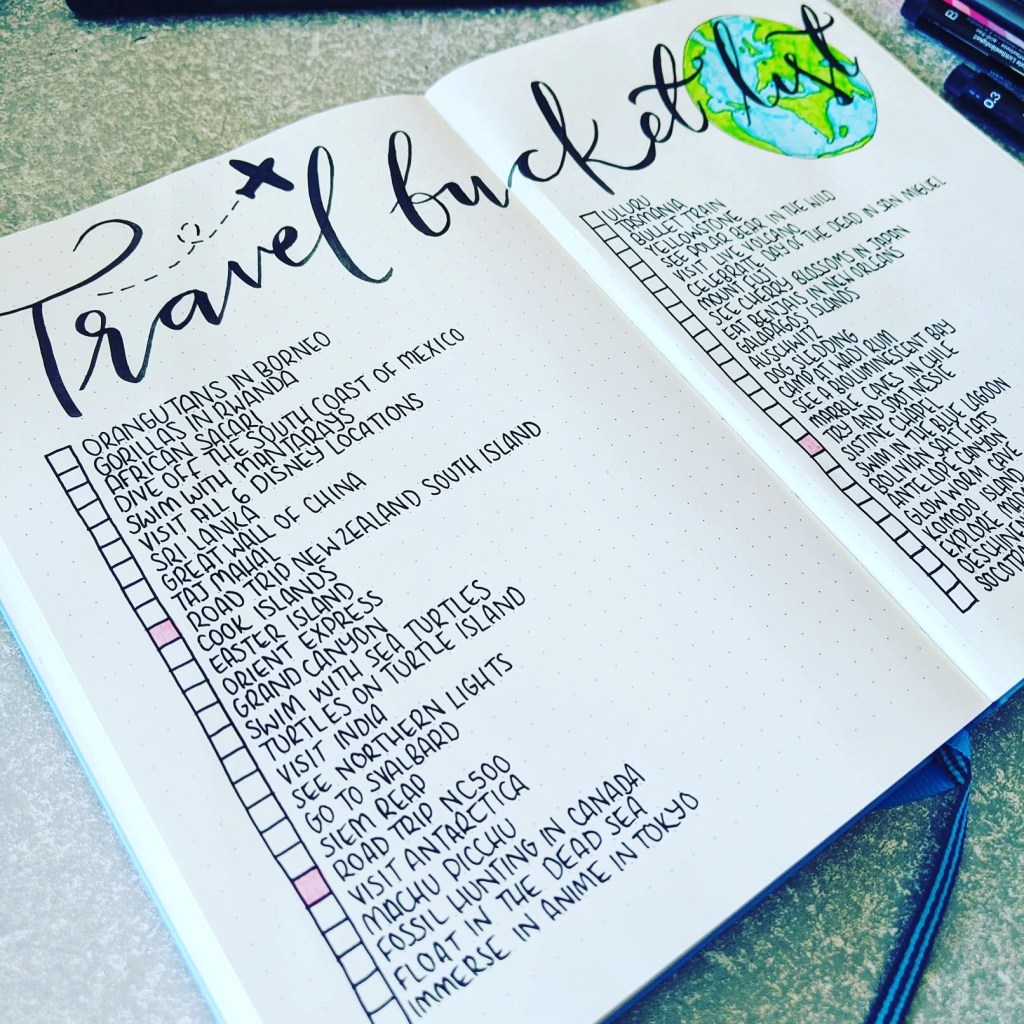 Travel bucket list
ORANGUTANS IN BORNEO
GORILLAS IN RWANDA
AFRICAN SAFARI
DIVE OFF THE SOUTH COAST OF MEXICO
SWIM WITH MANTARAYS
VISIT ALL 6 DISNEY LOCATIONS
SRI LANKA
GREAT WALL OF CHINA
TAJ MAHAL
ROAD TRIP NEW ZEALAND SOUTH ISLAND
COOK ISLANDS
EASTER ISLAND
ORIENT EXPRESS
GRAND CANYON
SWIM WITH SEA TURTLES
TURTLES ON TURTLE ISLAND
VISIT INDIA
SEE NORTHERN LIGHTS
GO TO SVALBARD
SIEM REAP
ROAD TRIP NC500
VISIT ANTARCTICA
MACHU PICCHU
FOSSIL HUNTING IN CANADA
FLOAT IN THE DEAD SEA
IMMERSE IN ANIME IN TOKYO
ULURU
TASMANIA
BULLET TRAIN
YELLOWSTONE
SEE POLAR BEAR IN THE WILD
VISIT LIVE VOLCANO
CELEBRATE DAY OF THE DEAD IN SAN MIGUEL
MOUNT FUJI
SEE CHERRY BLOSSOMS IN JAPAN
EAT BEIGNETS IN NEW ORLEANS
GALAPAGOS ISLANDS
AUSCHWITZ
DOG SLEDDING
CAMP AT WADI RUM
SEE A BIOLUMINESCENT BAY
MARBLE CAVES IN CHILE
TRY AND SPOT NESSIE
SISTINE CHAPEL
SWIM IN THE BLUE LAGOON
BOLIVIAN SALT FLATS
ANTELOPE CANYON
GLOW WORM CAVE
KOMODO ISLAND
EXPLORE
SOCOTRA
B
0.3